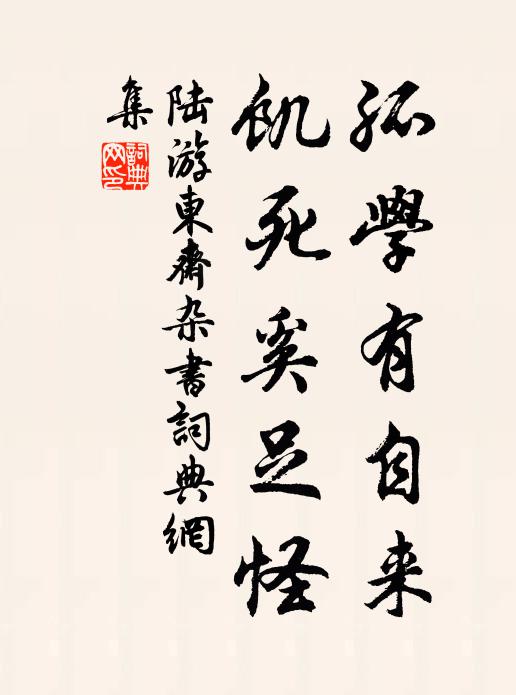 孤學有自来
飢死奚足怪
陆游東齋杂書詞典網
集
詞典網印